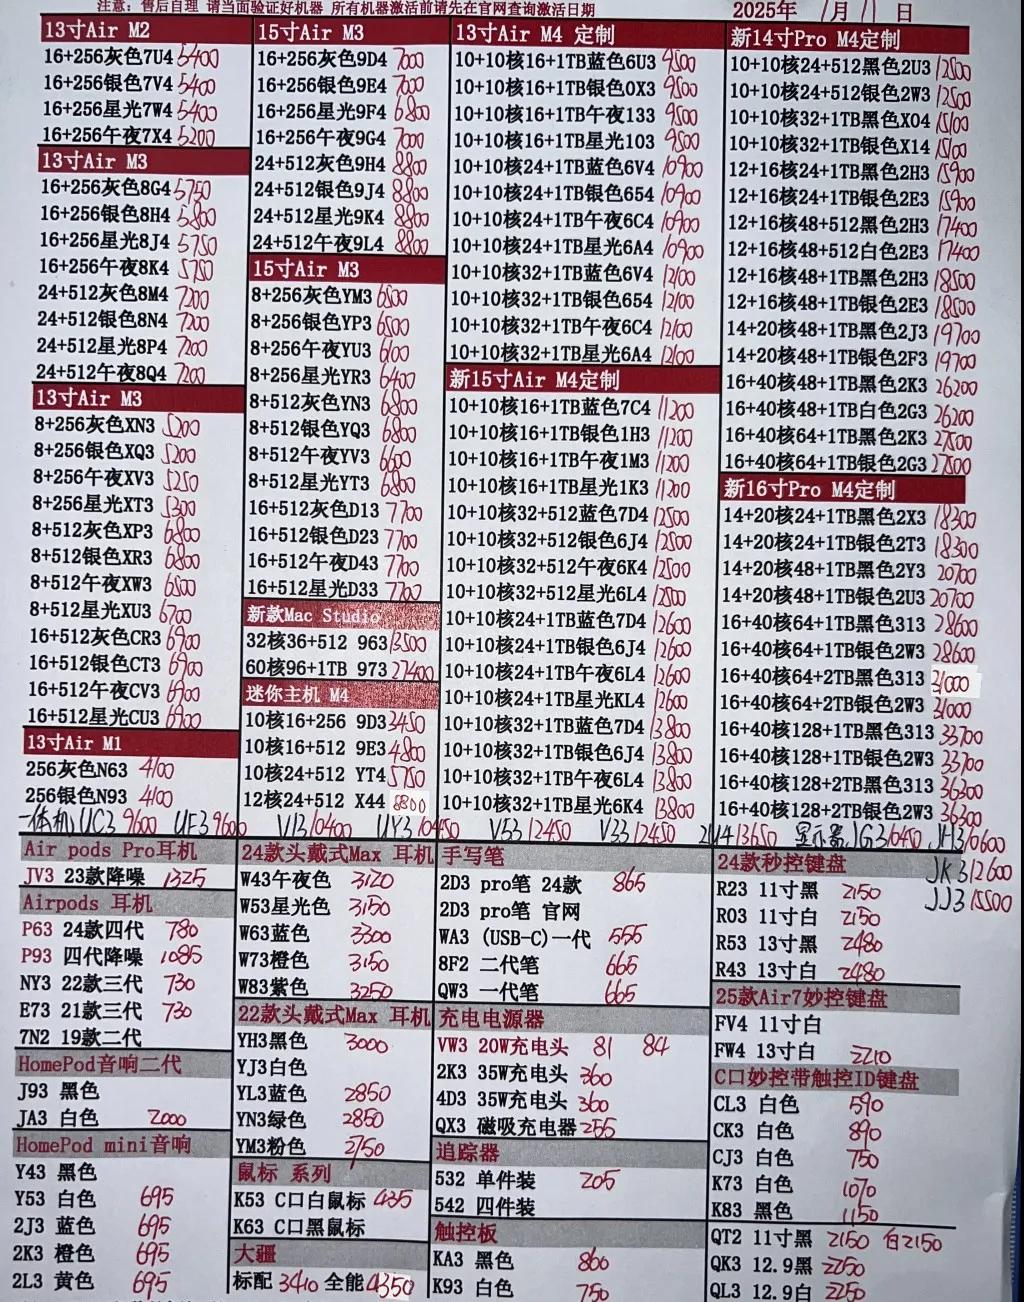 注意: 售后自理 请当面验证好机器 所有机器激活前请先在官网查询激活日期
2025年 1月 11 日
13寸Air M2
16+256灰色7U4 5400
16+256银色7V4 5400
16+256星光7W4 5400
16+256午夜7X4 5200
13寸Air M3
16+256灰色8G4 5750
16+256银色8H4 5800
16+256星光8J4 5750
16+256午夜8K4 5750
24+512灰色8M4 7200
24+512银色8N4 7200
24+512星光8P4 7200
24+512午夜8Q4 7200
13寸Air M3
8+256灰色XN3 5200
8+256银色XQ3 5200
8+256午夜XV3 5250
8+256星光XT3 5300
8+512灰色XP3 6800
8+512银色XR3 6800
8+512午夜XW3 6500
8+512星光XU3 6700
16+512灰色CR3 6900
16+512银色CT3 6900
16+512午夜CV3 6900
16+512星光CU3 6900
13寸Air M1
256灰色N63 4100
256银色N93 4100
15寸Air M3
16+256灰色9D4 7000
16+256银色9E4 7000
16+256星光9F4 6800
16+256午夜9G4 7000
24+512灰色9H4 8800
24+512银色9J4 8800
24+512星光9K4 8800
24+512午夜9L4 8800
15寸Air M3
8+256灰色YM3 6500
8+256银色YP3 6500
8+256午夜YU3 6100
8+256星光YR3 6400
8+512灰色YN3 6800
8+512银色YQ3 6800
8+512午夜YV3 6600
8+512星光YT3 6800
16+512灰色D13 7700
16+512银色D23 7700
16+512午夜D43 7700
16+512星光D33 7700
新款Mac Studio
32核36+512 963 13500
60核96+1TB 973 27400
迷你主机 M4
10核16+256 9D3 3450
10核16+512 9E3 4800
10核24+512 YT4 5750
12核24+512 X44 8800
13寸Air M4 定制
10+10核16+1TB蓝色6U3 9500
10+10核16+1TB银色0X3 9500
10+10核16+1TB午夜133 9500
10+10核16+1TB星光103 9500
10+10核24+1TB蓝色6V4 10900
10+10核24+1TB银色654 10900
10+10核24+1TB午夜6C4 10900
10+10核24+1TB星光6A4 10900
10+10核32+1TB蓝色6V4 12100
10+10核32+1TB银色654 12100
10+10核32+1TB午夜6C4 12100
10+10核32+1TB星光6A4 12100
新15寸Air M4定制
10+10核16+1TB蓝色7C4 11200
10+10核16+1TB银色1H3 11200
10+10核16+1TB午夜1M3 11200
10+10核16+1TB星光1K3 11200
10+10核32+512蓝色7D4 12500
10+10核32+512银色6J4 12500
10+10核32+512午夜6K4 12500
10+10核32+512星光6L4 12500
10+10核24+1TB蓝色7D4 12600
10+10核24+1TB银色6J4 12600
10+10核24+1TB午夜6L4 12600
10+10核24+1TB星光KL4 12600
10+10核32+1TB蓝色7D4 13800
10+10核32+1TB银色6J4 13800
10+10核32+1TB午夜6L4 13800
10+10核32+1TB星光6K4 13800
新14寸Pro M4定制
10+10核24+512黑色2U3 12500
10+10核24+512银色2W3 12500
10+10核32+1TB黑色X04 15100
10+10核32+1TB银色X14 15100
12+16核24+1TB黑色2H3 15900
12+16核24+1TB银色2E3 15900
12+16核48+512黑色2H3 17400
12+16核48+512白色2E3 17400
12+16核48+1TB黑色2H3 18500
12+16核48+1TB银色2E3 18500
14+20核48+1TB黑色2J3 19700
14+20核48+1TB银色2F3 19700
16+40核48+1TB黑色2K3 26200
16+40核48+1TB白色2G3 26200
16+40核64+1TB黑色2K3 27500
16+40核64+1TB银色2G3 27500
新16寸Pro M4定制
14+20核24+1TB黑色2X3 18300
14+20核24+1TB银色2T3 18300
14+20核48+1TB黑色2Y3 20700
14+20核48+1TB银色2U3 20700
16+40核64+1TB黑色313 28600
16+40核64+1TB银色2W3 28600
16+40核64+2TB黑色313 31000
16+40核64+2TB银色2W3 31000
16+40核128+1TB黑色313 33700
16+40核128+1TB银色2W3 33700
16+40核128+2TB黑色313 36300
16+40核128+2TB银色2W3 36300
一体机 UC3 9600 UF3 9600 V13 10400 UY3 10450 V53 12450 V33 12450 2U4 13650 显示器 JG3 10450 JH3 10600
JK3 12600
JJ3 15500
Air pods Pro耳机
JV3 23款降噪 1325
Airpods 耳机
P63 24款四代 780
P93 四代降噪 1085
NY3 22款三代 730
E73 21款三代 730
7N2 19款二代
HomePod音响二代
J93 黑色
JA3 白色 2000
HomePod mini音响
Y43 黑色
Y53 白色 695
2J3 蓝色 695
2K3 橙色 695
2L3 黄色 695
24款头戴式Max 耳机
W43午夜色 3120
W53星光色 3150
W63蓝色 3300
W73橙色 3150
W83紫色 3250
22款头戴式Max 耳机
YH3黑色 3000
YJ3白色
YL3蓝色 2850
YN3绿色 2850
YM3粉色 2750
鼠标 系列
K53 C口白鼠标 435
K63 C口黑鼠标
大疆
标配 3410 全能 4350
手写笔
2D3 pro笔 24款 865
2D3 pro笔 官网
WA3 (USB-C)一代 555
8F2 二代笔 665
QW3 一代笔 665
充电电源器
VW3 20W充电头 81 84
2K3 35W充电头 360
4D3 35W充电头 360
QX3 磁吸充电器 255
追踪器
532 单件装 205
542 四件装
触控板
KA3 黑色 860
K93 白色 750
24款秒控键盘
R23 11寸黑 2150
R03 11寸白 2150
R53 13寸黑 2480
R43 13寸白 2480
25款Air7妙控键盘
FV4 11寸白
FW4 13寸白 2210
C口妙控带触控ID键盘
CL3 白色 590
CK3 白色 890
CJ3 白色 750
K73 白色 1070
K83 黑色 1150
QT2 11寸黑 2150 白2150
QK3 12.9黑 2250
QL3 12.9白 2250